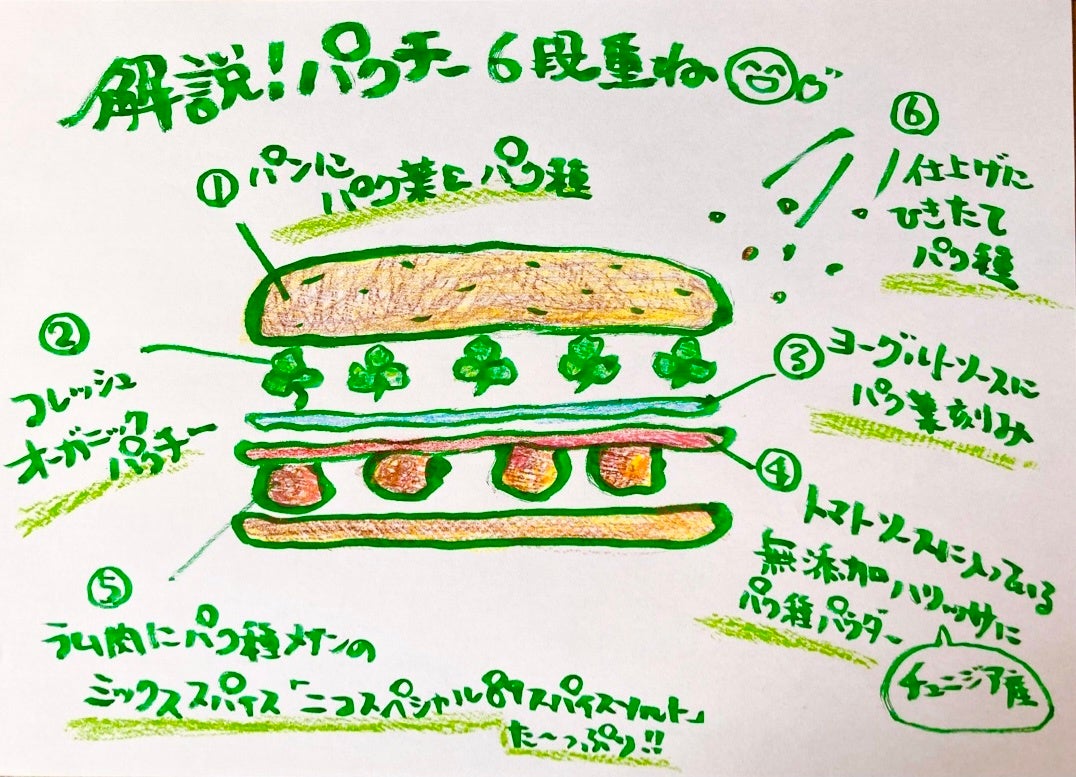 解説!パクチー6段重ね
①パンに
パク葉とパク種
②
フレッシュ
オーガニック
パクチー
③ヨーグルトソースに
パク葉刻み
④
トマトソースに入っている
無添加ハリッサに
パク種パウダー
チュニジア産
⑤
ラム肉にパク種メインの
ミックススパイス「ニコスペシャル89スパイスソルト」
た〜っぷり!!
⑥
仕上げに
ひきたて
パク種